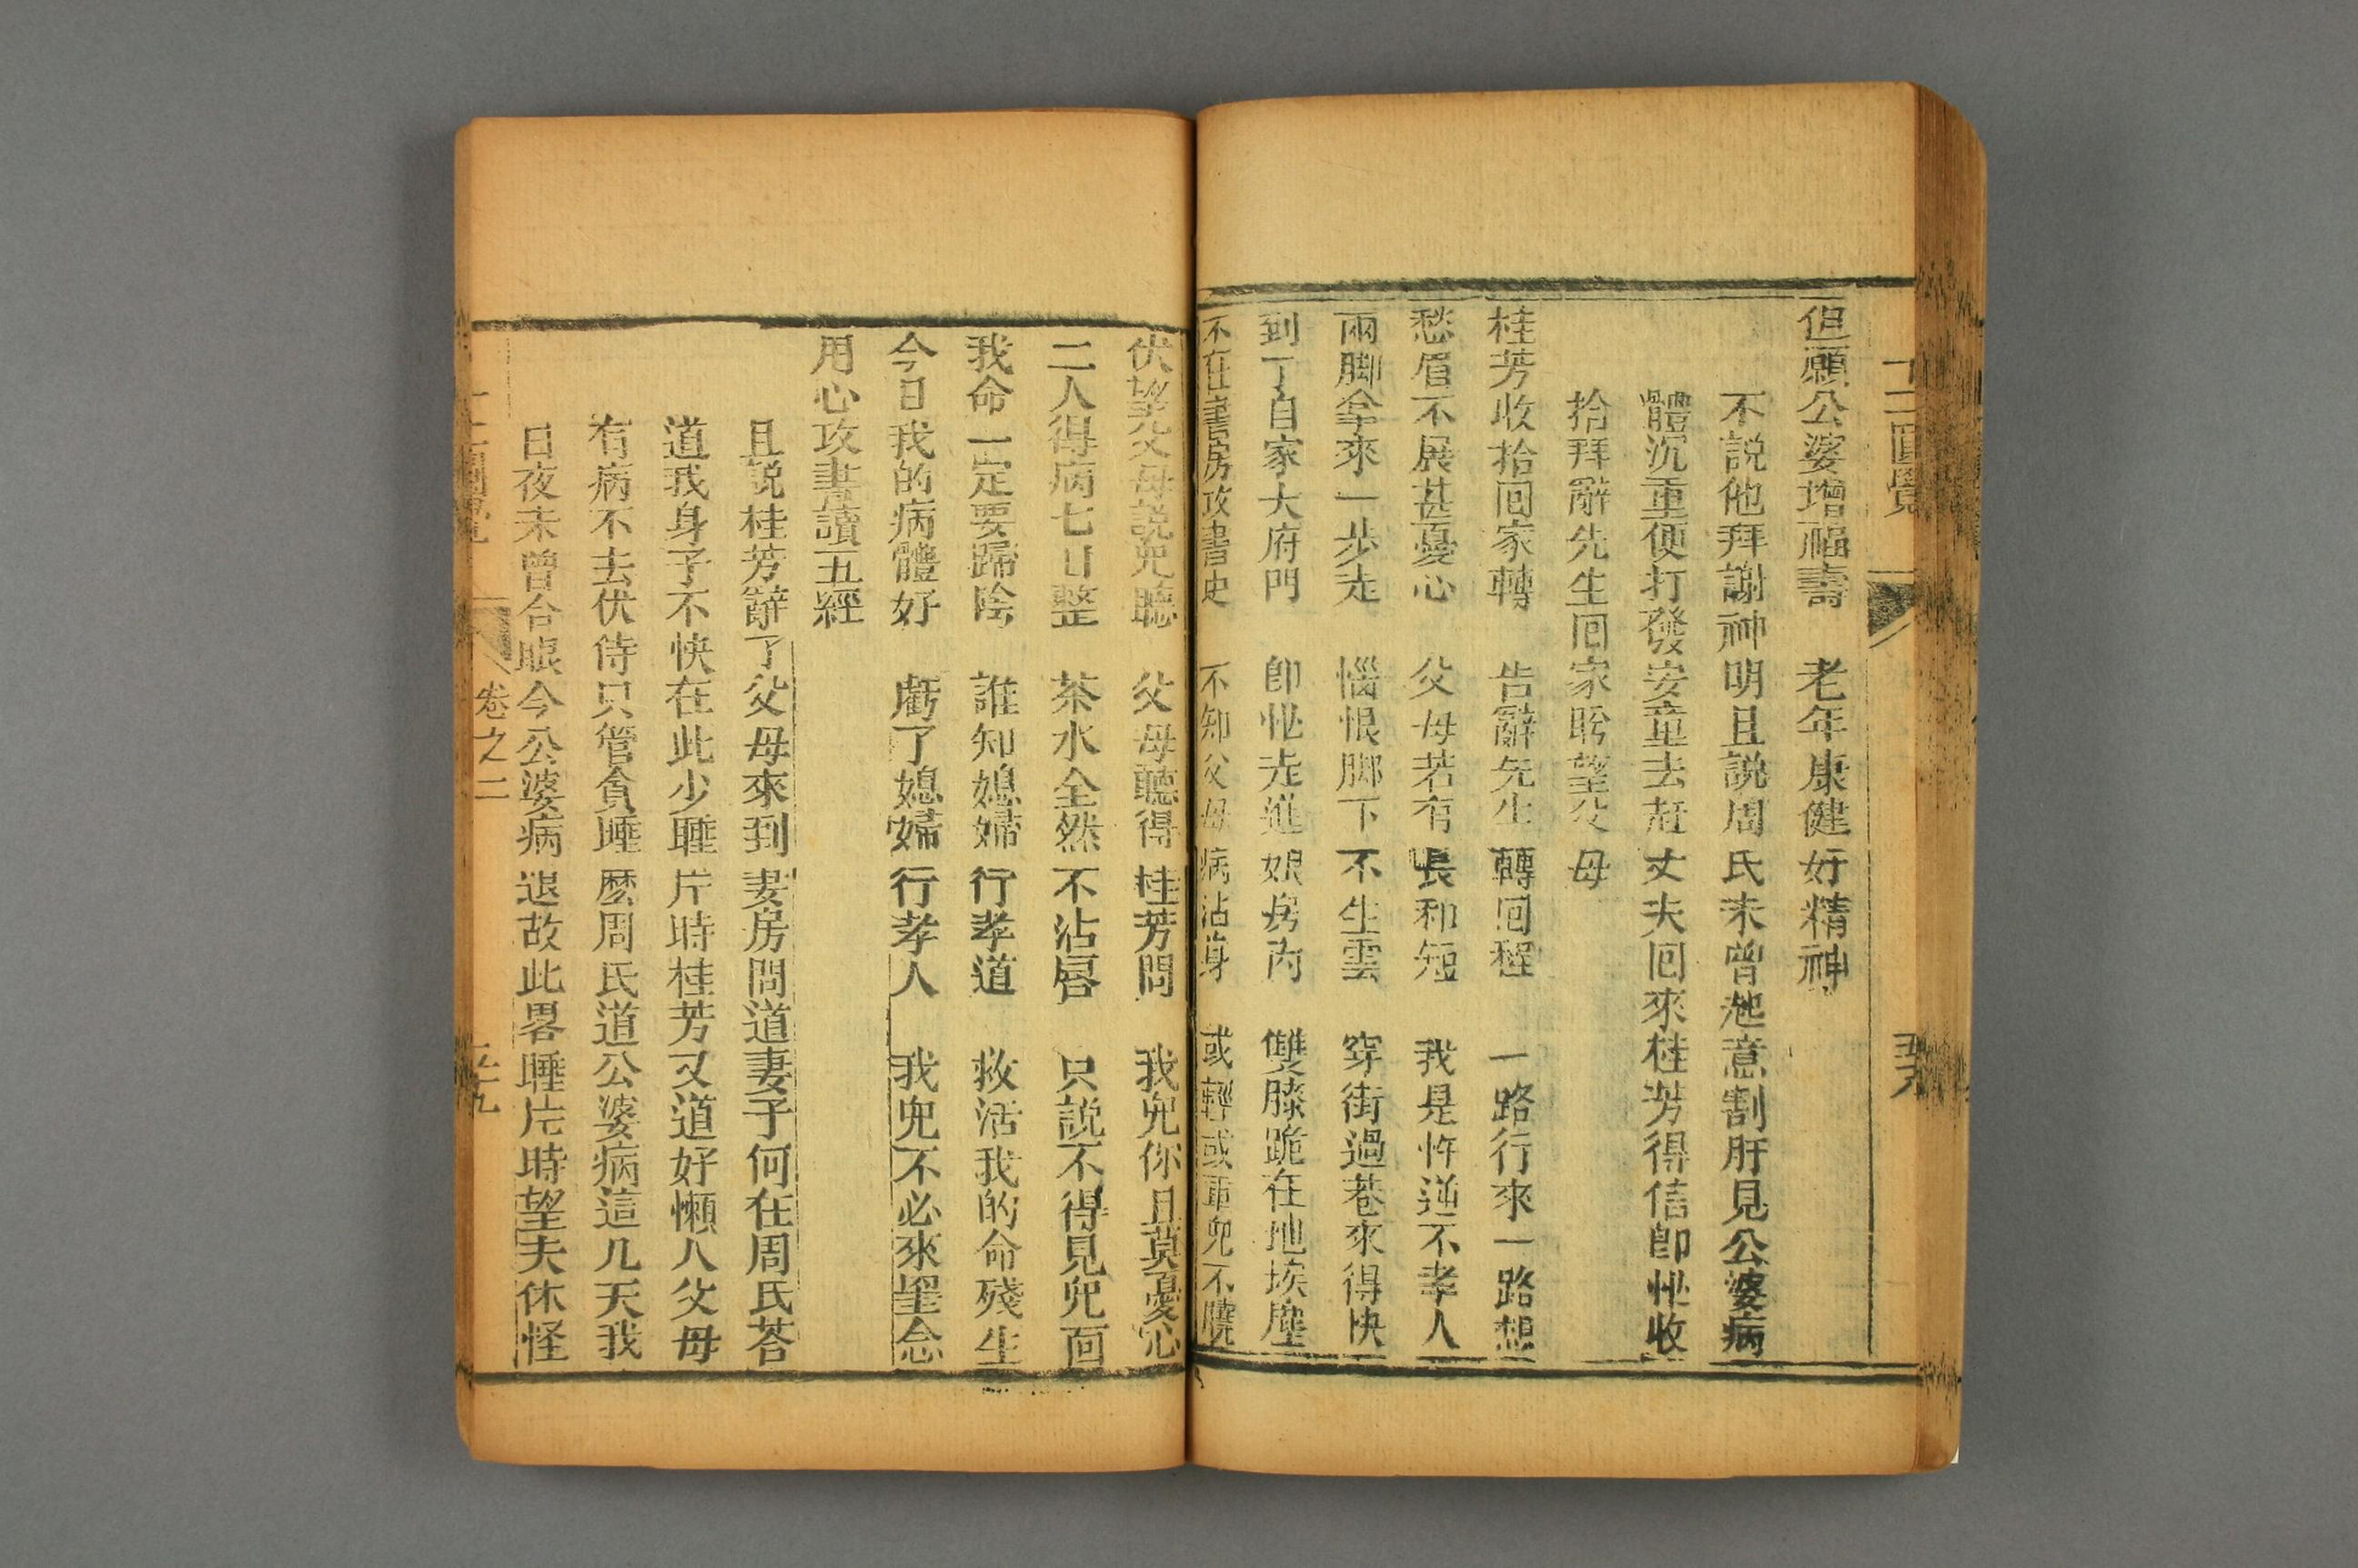 十二圓覺
但願公婆增福壽　老年康健好精神
不説他拜謝神明且説周氏未曾起意割肝見公婆病
體沉重便打發安童去赶丈夫回來桂芳得信卽忙收
拾拜辭先生回家盼望父母
桂芳收拾回家轉　告辭先生轉回程　一路行來一路想
愁眉不展甚憂心　父母若有長和短　我是忤逆不孝人
兩脚拿來一步走　惱恨脚下不生雲　穿街過巷來得快
到了自家大府門　卽忙走進娘房內　雙膝跪在地埃塵
不在書房攻書史　不知父母病沾身　或輕或重兒不曉
伏望父母説兒聽　父母聽得桂芳問　我兒你且莫憂心
二人得病七日整　茶水全然不沾唇　只説不得見兒面
我命一定要歸陰　誰知媳婦行孝道　救活我的命殘生
今日我的病體好　虧了媳婦行孝人　我兒不必來望念
用心攻書讀五經
且説桂芳辭了父母來到妻房問道妻子何在周氏荅
道我身子不快在此少睡片時桂芳又道好懶人父母
有病不去伏侍只管貪睡麽周氏道公婆病這几天我
日夜未曾合眼今公婆病退故此畧睡片時望夫休怪
卷之二